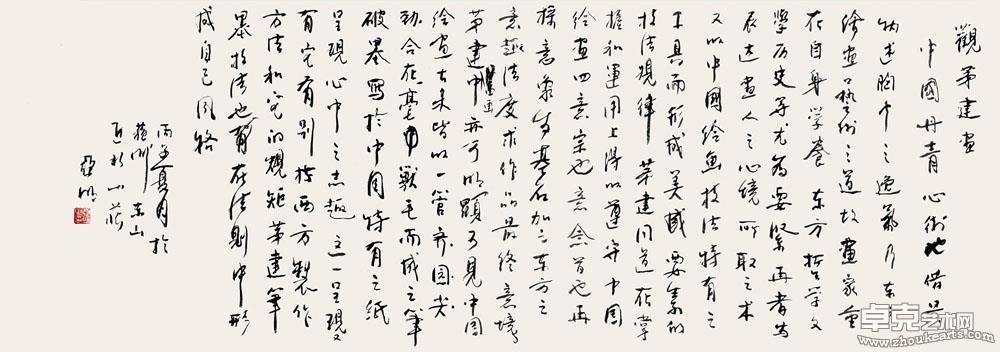 觀茅建畫
中國丹青心術也借景
物述胸中之逸氣乃東方
繪畫藝術之道故畫家重
在自身學養東方哲學文
學历史等尤為要緊再者为
表达畫人之心境所取之术
又以中國绘画技法特有之
工具而形成美感要素的
技法規律茅建同道在掌
握和運用上得以遵守中国
绘画四意宗也意念首也再
择意象为基石加之东方之
意趣法度求作品最终意境
茅建中國画亦可明顯可見中国
绘畫古来皆以一管齐圆尖
劲合在毫中獸毛而成之筆
破墨寫於中国特有之纸
呈現心中之志趣这一呈現
有它有别於西方製作
方法和它的规矩茅建筆
墨技法也贵在法則中形
成自己风格
丙子夏月於
蘇州东山
近杉山莊
亞明
卓克艺术网
www.zhoukearts.com